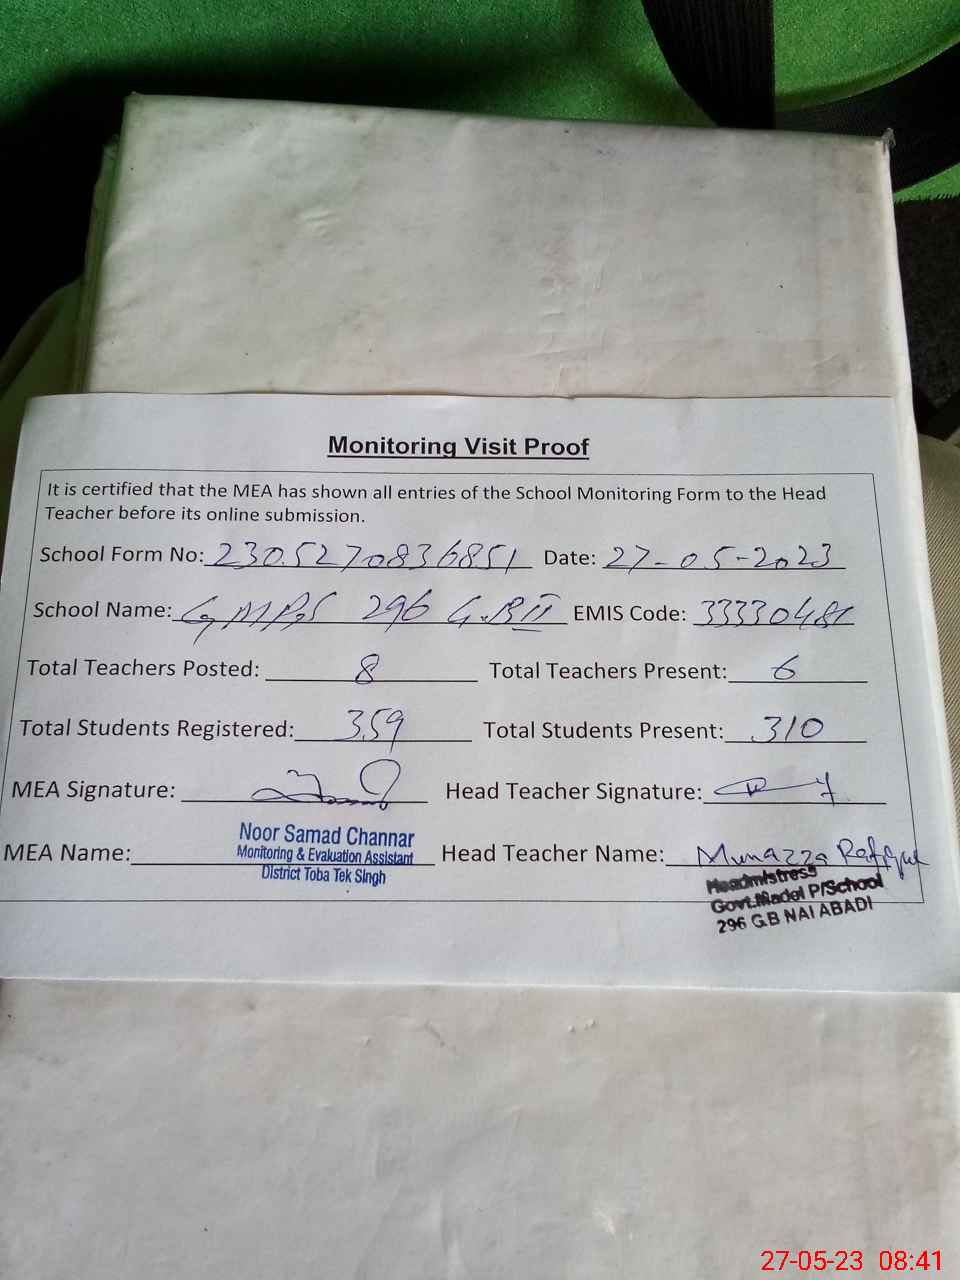 Monitoring Visit Proof
It is certified that the MEA has shown all entries of the School Monitoring Form to the Head
Teacher before its online submission.
School Form No: 2305270836851 Date: 27-05-2023
School Name: GMPS 296 G.B II EMIS Code: 33330481
Total Teachers Posted: 8 Total Teachers Present: 6
Total Students Registered: 359 Total Students Present: 310
MEA Signature: Head Teacher Signature:
MEA Name: Noor Samad Channar Head Teacher Name: Munazza Rafique
Monitoring & Evaluation Assistant
District Toba Tek Singh
Headmistress
Govt.Madel P/School
296 G.B NAI ABADI
27-05-23 08:41